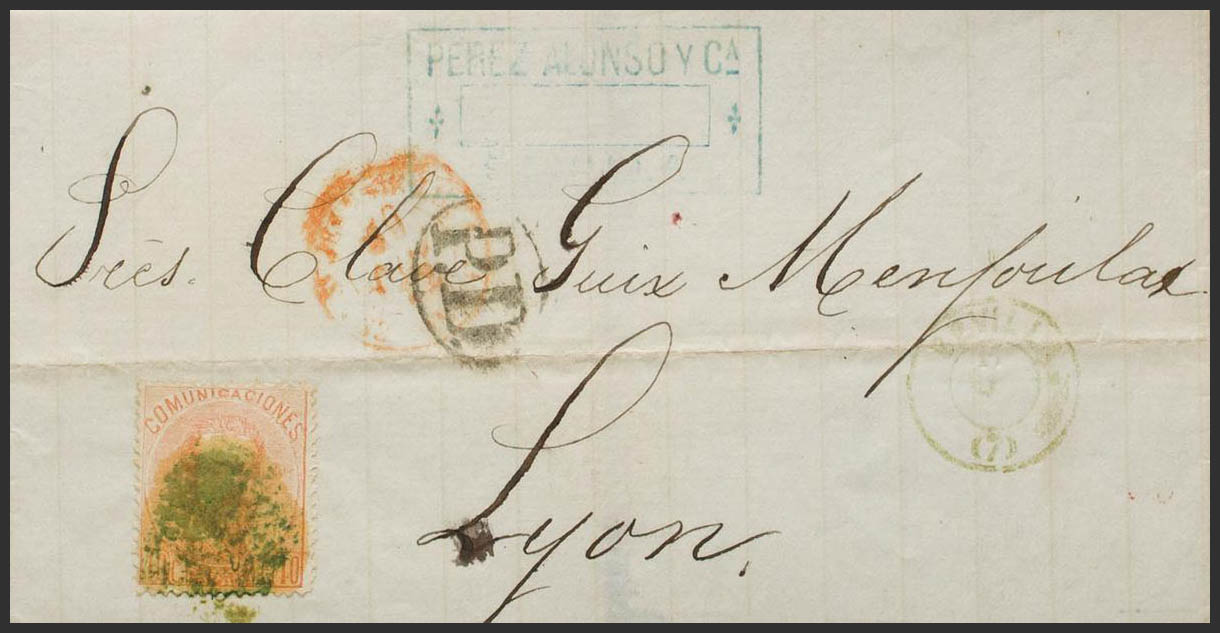 PEREZ ALONSO Y CA
Srēs. Clave Guix Monfoulax
P.D.
Lyon.
COMUNICACIONES
40 40
(7)